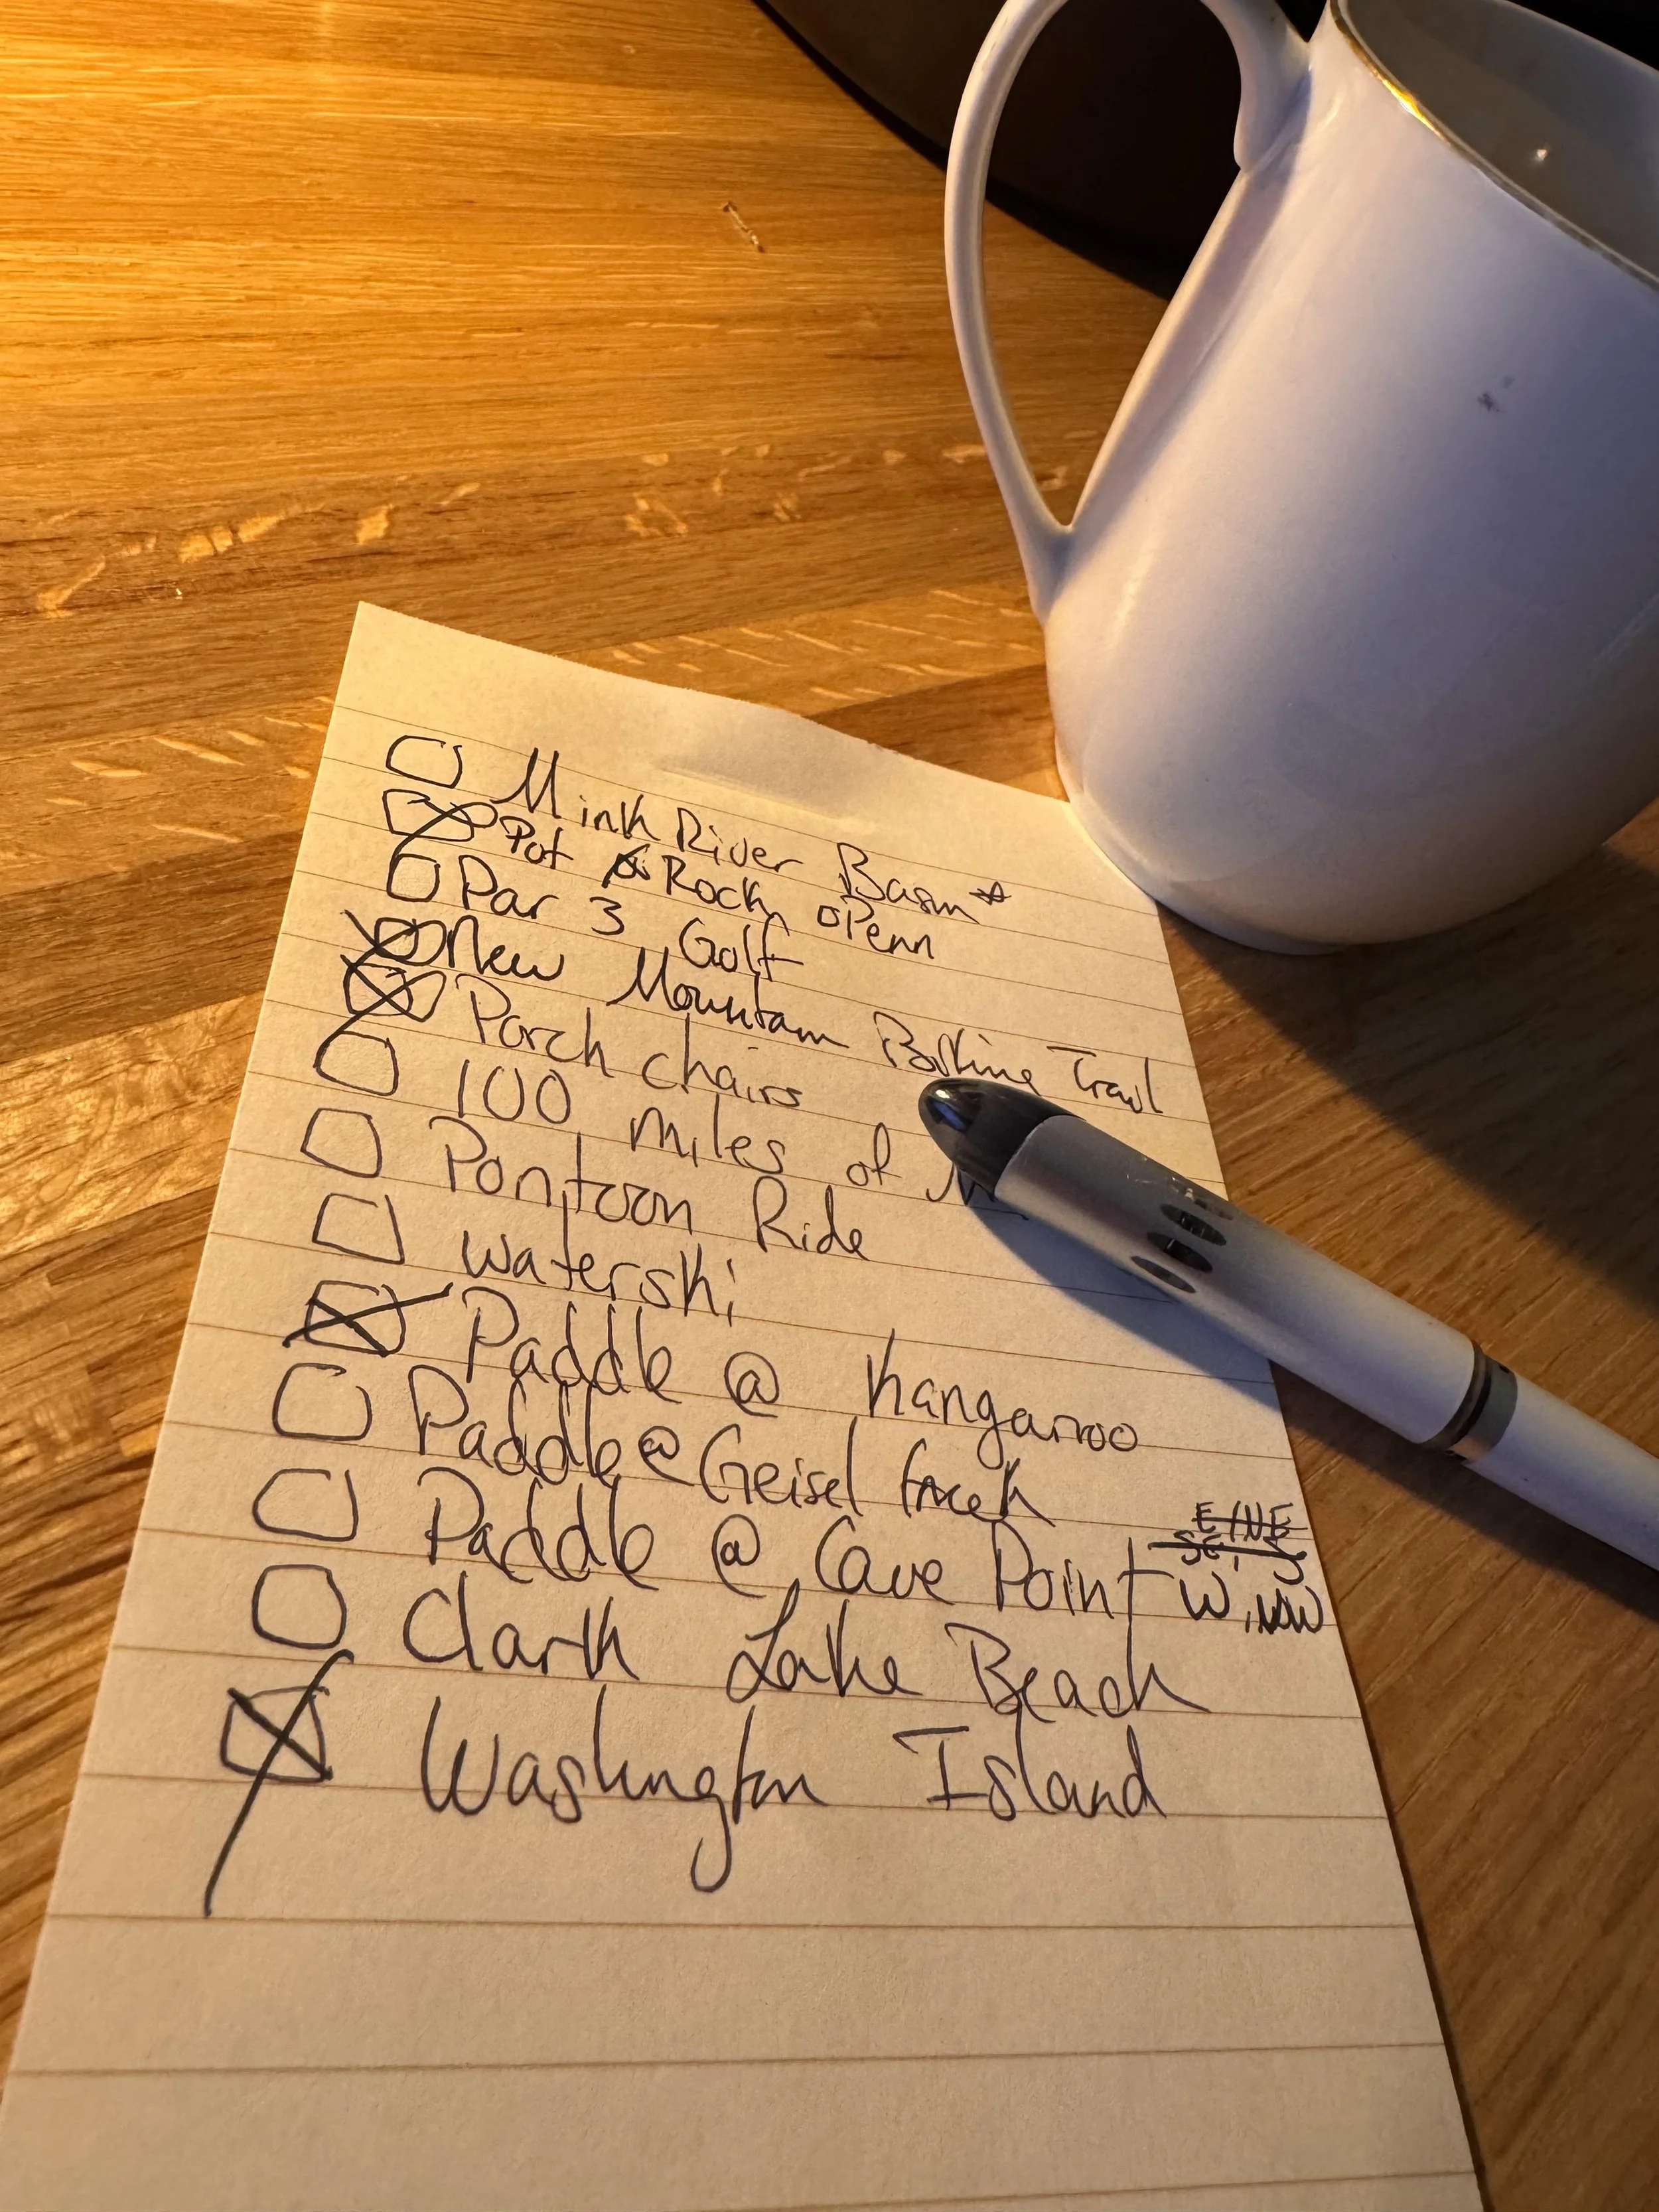 Mink River Basin*
Pot Rock, Penn
Par 3 Golf
New Mountain Biking Trail
Porch chairs
100 miles of
Pontoon Ride
waterski
Paddle @ Kangaroo
Paddle @ Geisel
E/NE
SE, S
Paddle @ Cave Point W, NW
Clark Lake Beach
Washington Island